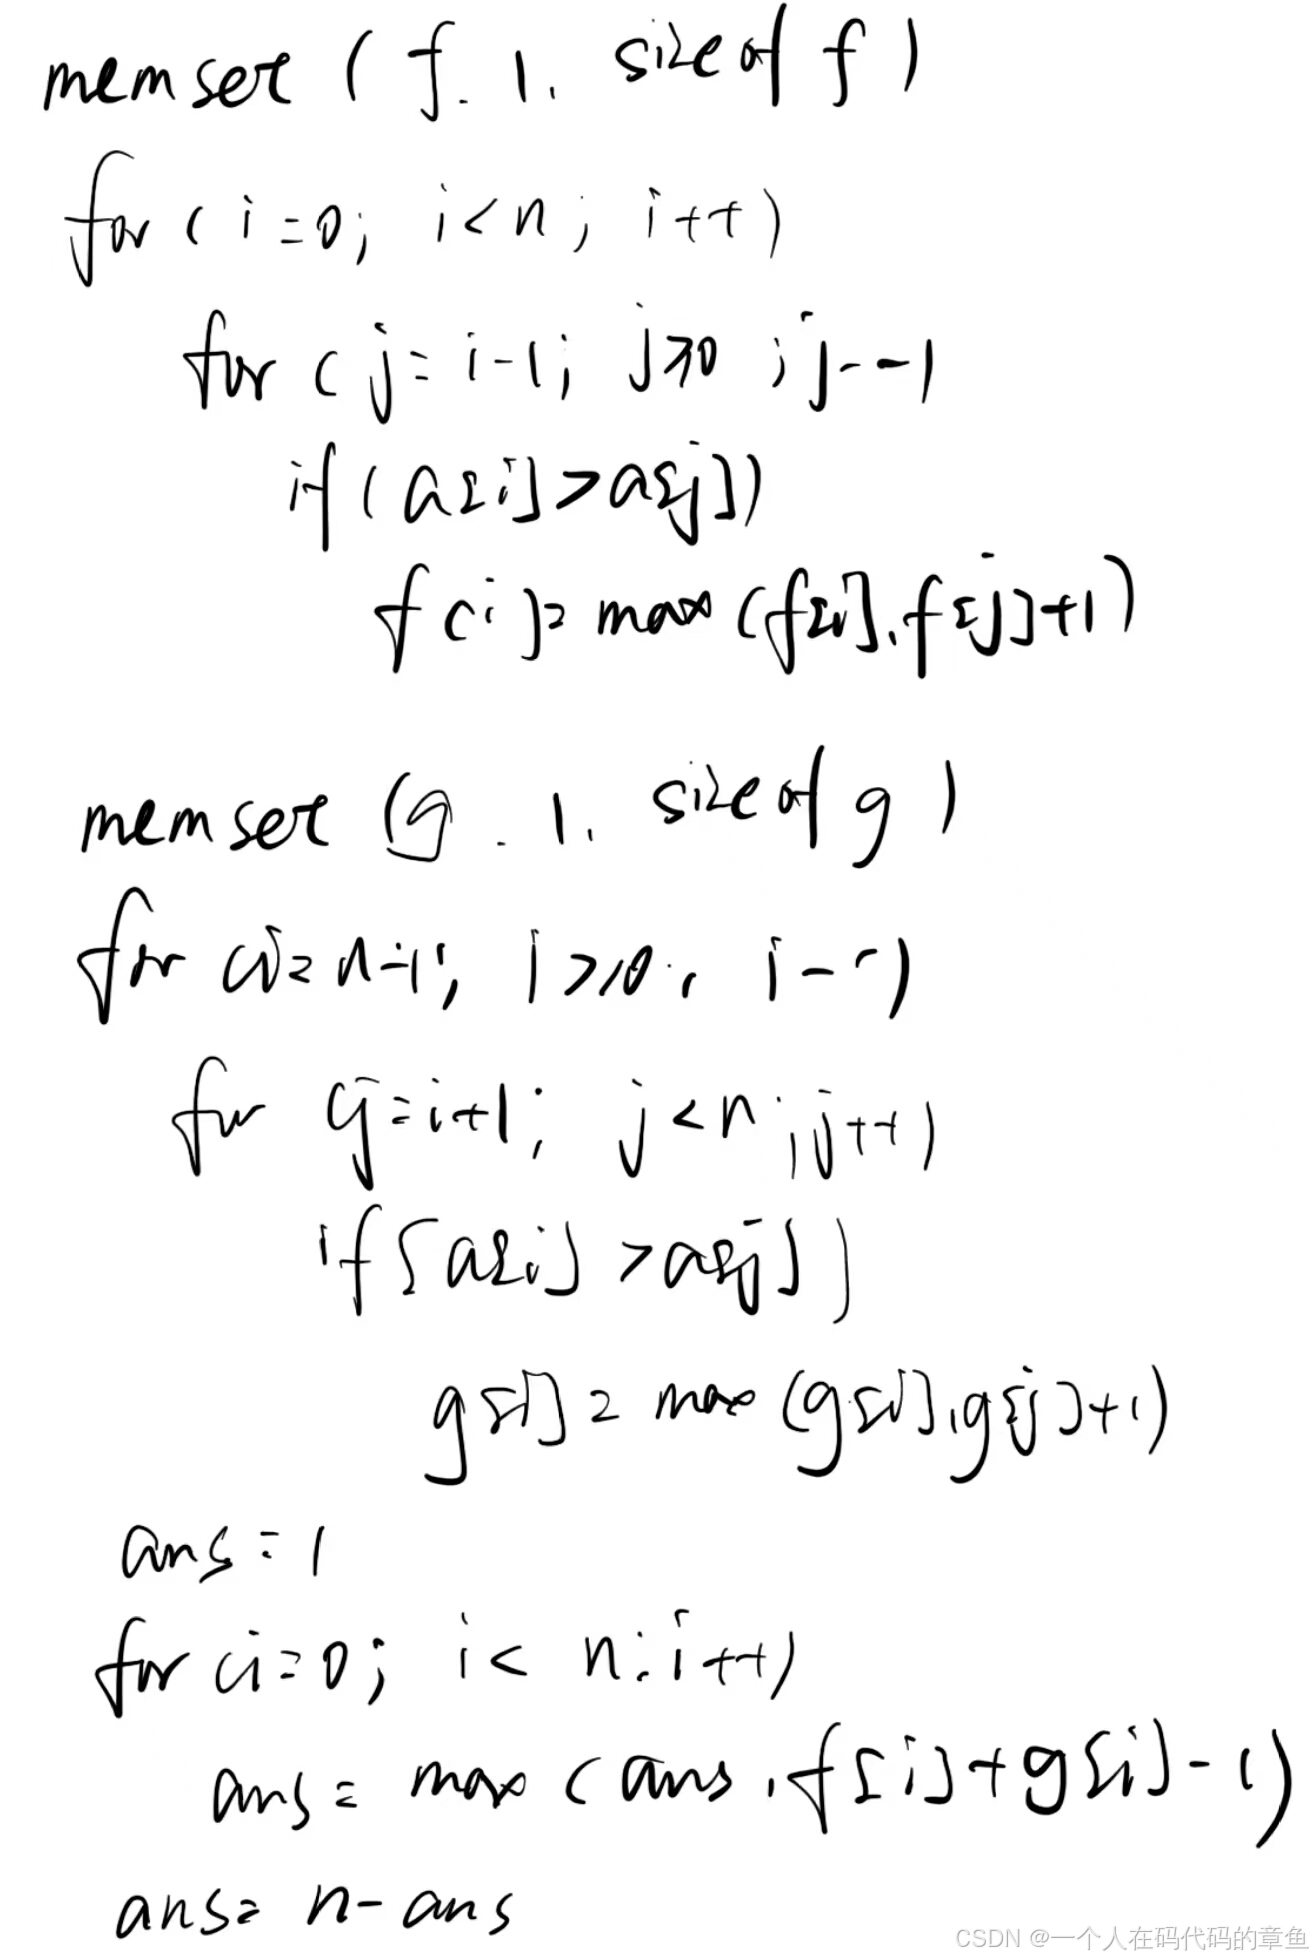 memset ( f . 1 . sizeof f )
for ( i=0; i<n ; i++)
for ( j= i-1; j≥0 ; j--)
if ( a[i]>a[j])
f[i]= max (f[i], f[j]+1)
memset (g . 1 . sizeof g )
for (i= n-1; i≥0; i--)
for (j=i+1; j<n ; j++)
if [a[i] >a[j])
g[i]= max (g[i],g[j]+1)
ans=1
for (i=0; i< n;i++)
ans= max ( ans , f[i]+g[i]-1)
ans= n- ans
CSDN @一个人在码代码的章鱼